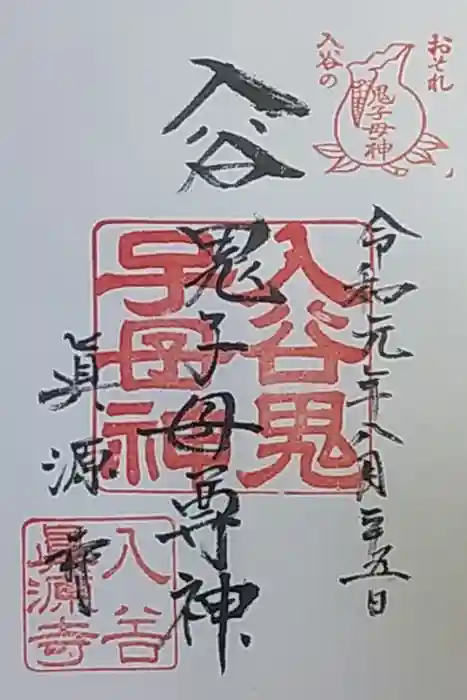 おそれ
入谷の
鬼子母神
令和元年八月二十五日
入谷
鬼子母尊神
眞源寺
入谷鬼
子母神
入谷
眞源寺